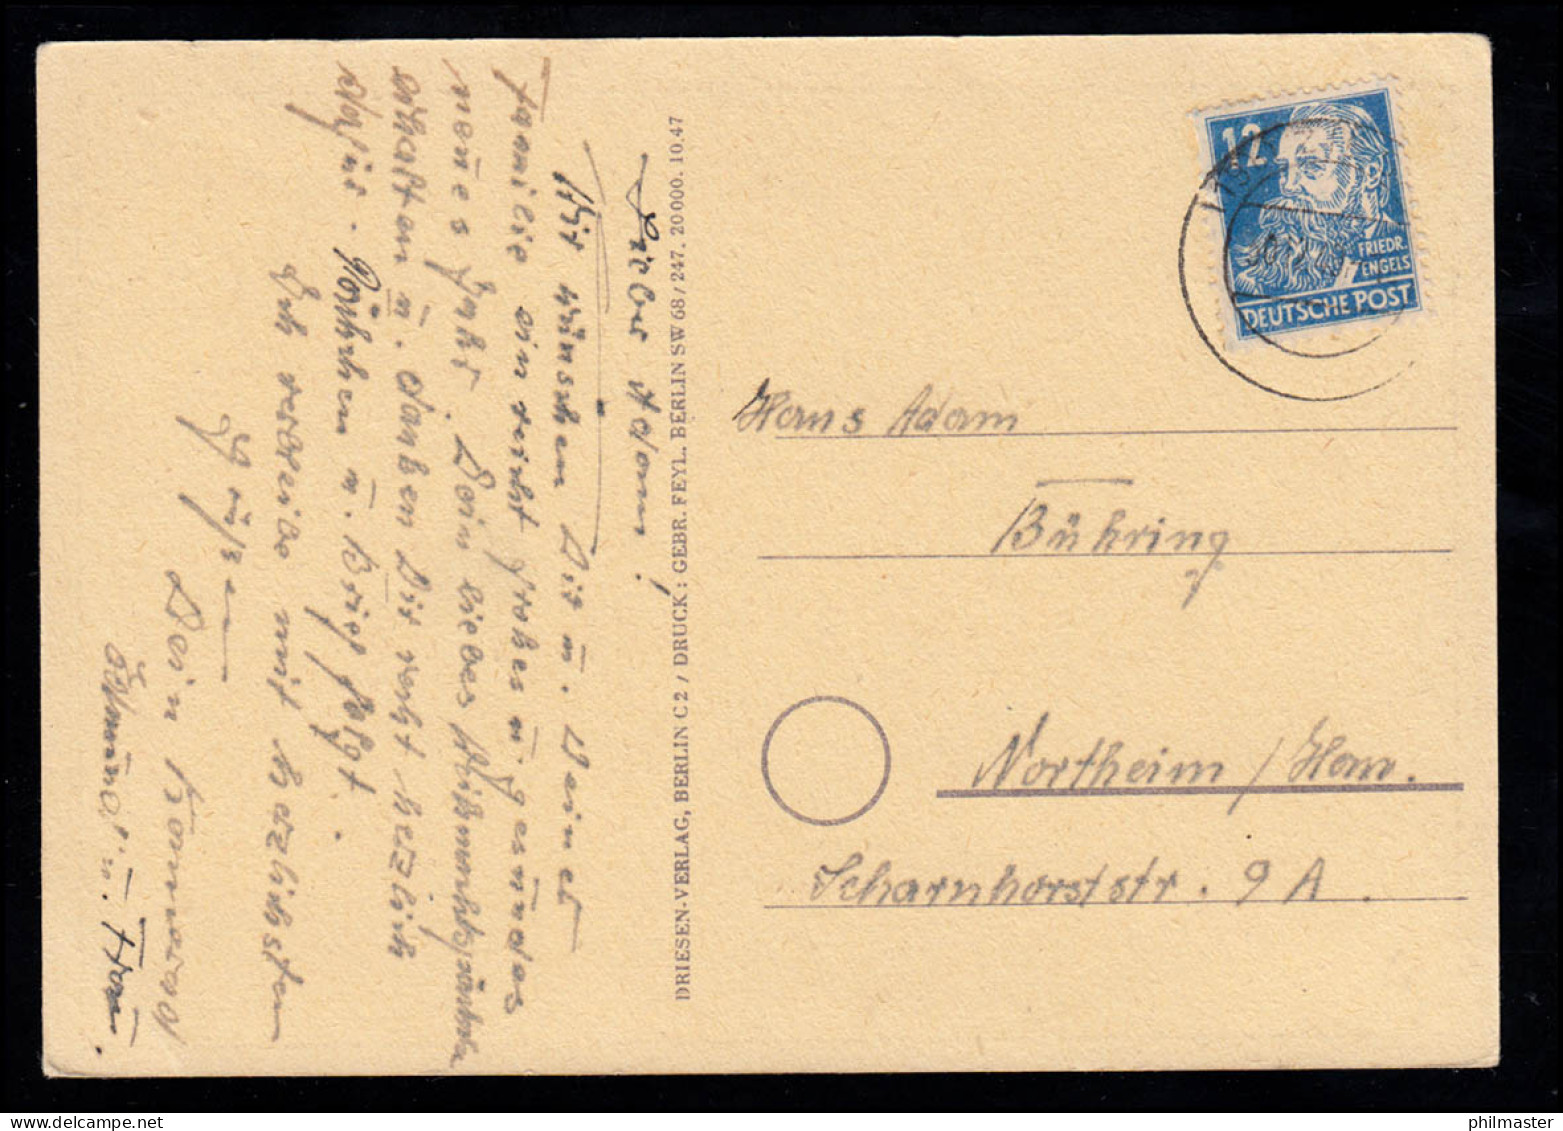 Lieber Adam!
Wir wünschen Dir u. Deiner
Familie ein recht frohes u. gesundes
neues Jahr. Dein liebes Weihnachtspäckchen
erhalten u. danken Dir recht herzlich
dafür. Päckchen u. Brief folgt.
Ich verbleibe mit herzlichsten
Grüßen
Dein Kamerad
u. Frau.
DRIESEN-VERLAG, BERLIN C 2 / DRUCK: GEBR. FEYL, BERLIN SW 68 / 247. 20000. 10. 47
12
FRIEDR.
ENGELS
DEUTSCHE POST
Hans Adam
Bühring
Northeim / Han.
Scharnhorststr. 9 A.
philmaster